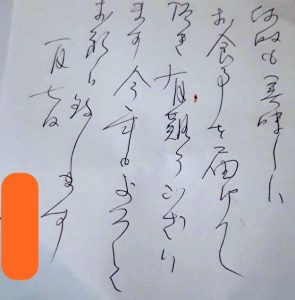 何時も美味しい
お食事を届けて
頂き有難うござい
ます今年もよろしく
お願い致します
一月七日